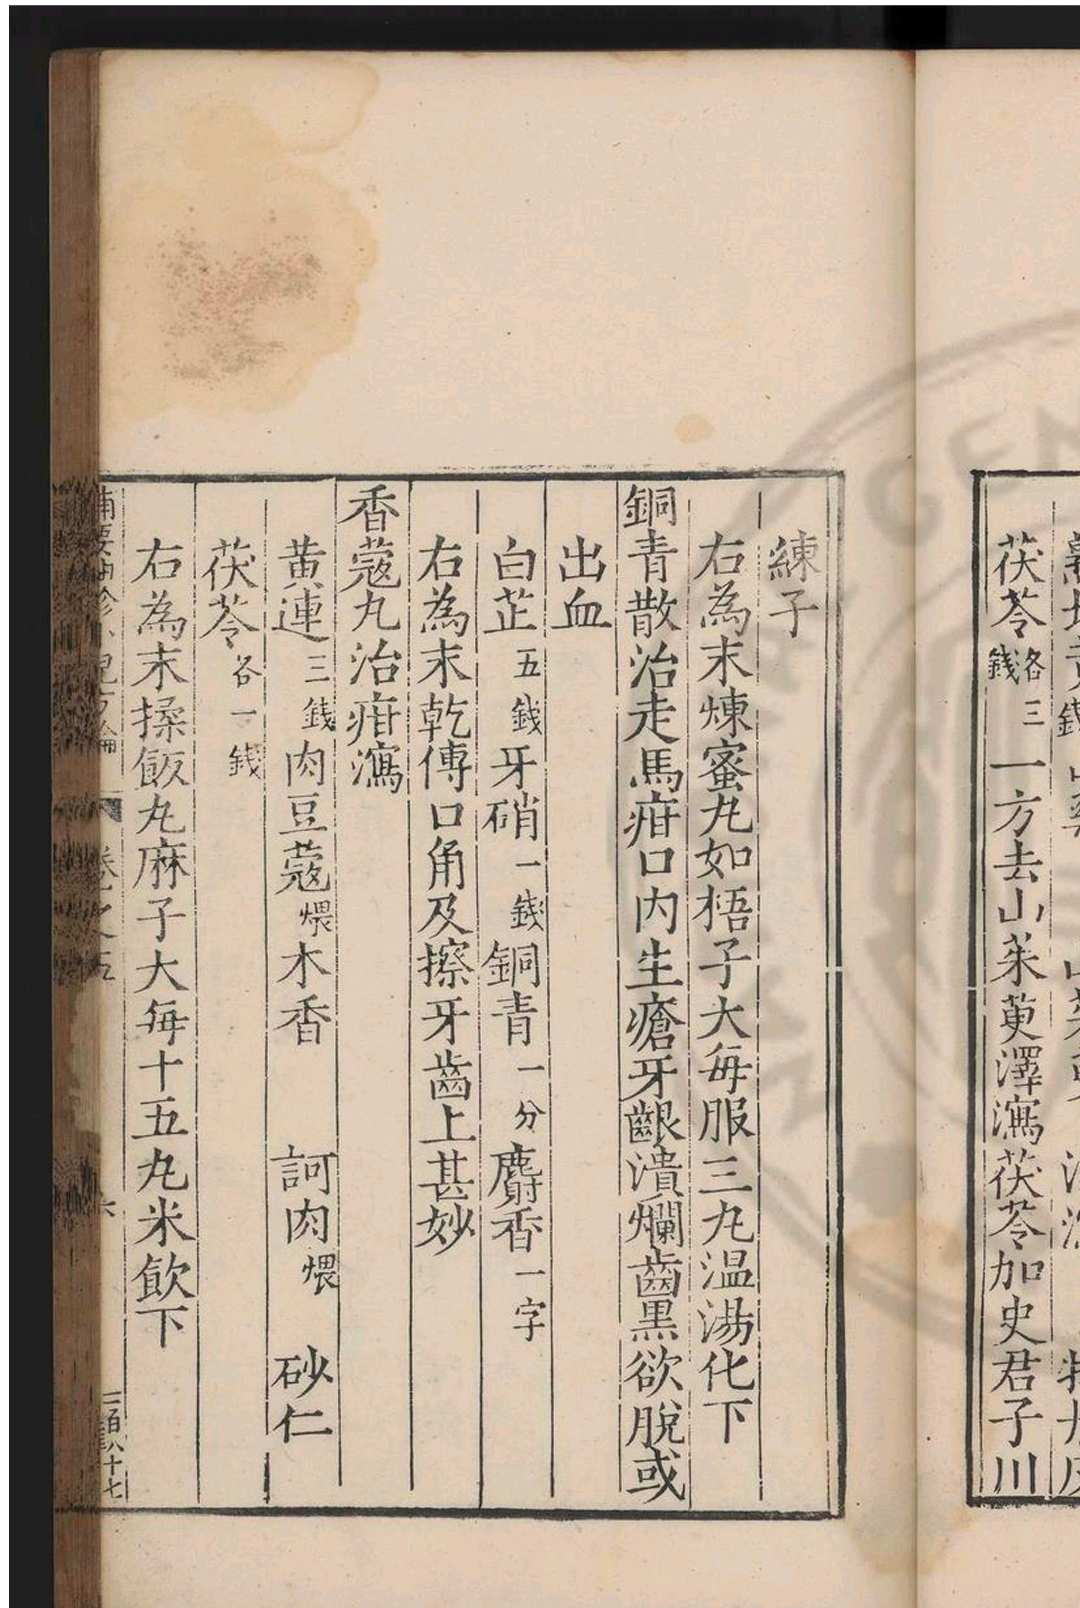 茯苓各三錢一方去山茱萸澤瀉茯苓加史君子川
練子
右為末煉蜜丸如梧子大每服三丸温湯化下
銅青散治走馬疳口内生瘡牙齦潰爛齒黑欲脫或
出血
白芷五錢牙硝一錢銅青一分麝香一字
右為末乾傅口角及擦牙齒上甚妙
香蔻丸治疳瀉
黄連三錢肉豆蔻煨木香 訶肉煨 砂仁
茯苓各一錢
右為末揉飯丸麻子大每十五丸米飲下
卷之五
六
二百八十七